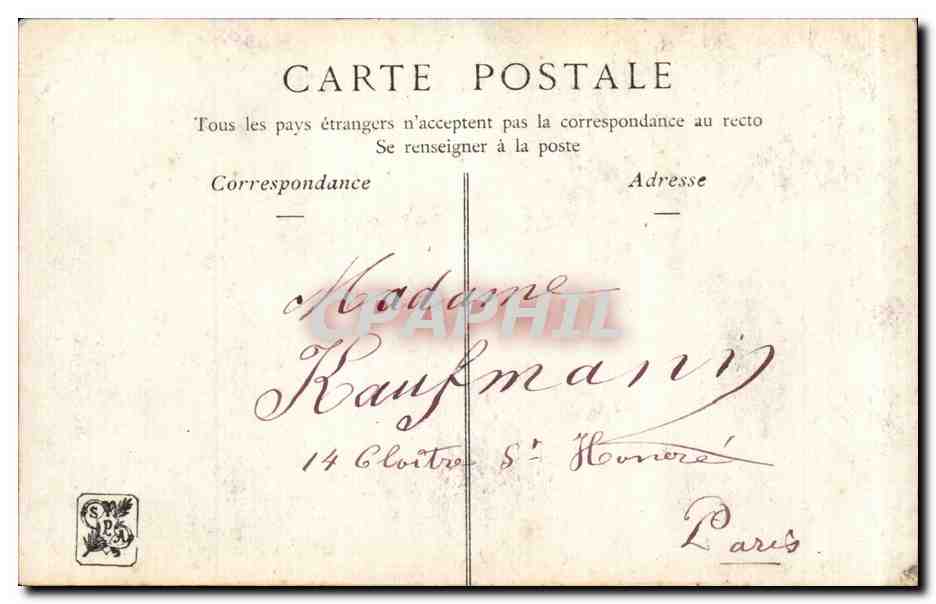 CARTE POSTALE
Tous les pays étrangers n'acceptent pas la correspondance au recto
Se renseigner à la poste
Correspondance
Adresse
Madame
CPAPHIL
Kaufmann
14 Cloître St Honoré
Paris
S P A